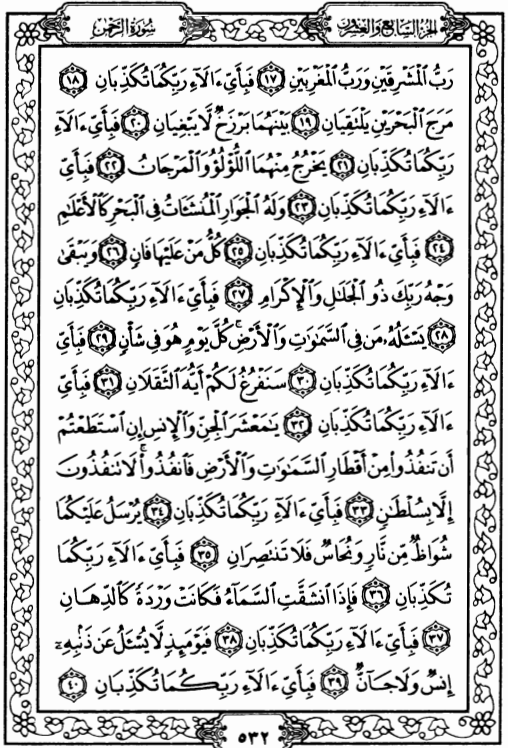 الجزء السابع والعشرون
سورة الرحمن
رَبُّ الْمَشْرِقَيْنِ وَرَبُّ الْمَغْرِبَيْنِ ١٧ فَبِأَيِّ ءَالَاءِ رَبِّكُمَا تُكَذِّبَانِ ١٨
مَرَجَ الْبَحْرَيْنِ يَلْتَقِيَانِ ١٩ بَيْنَهُمَا بَرْزَخٌ لَّا يَبْغِيَانِ ٢٠ فَبِأَيِّ ءَالَاءِ
رَبِّكُمَا تُكَذِّبَانِ ٢١ يَخْرُجُ مِنْهُمَا اللُّؤْلُؤُ وَالْمَرْجَانُ ٢٢ فَبِأَيِّ
ءَالَاءِ رَبِّكُمَا تُكَذِّبَانِ ٢٣ وَلَهُ الْجَوَارِ الْمُنشَئَاتُ فِي الْبَحْرِ كَالْأَعْلَٰمِ
٢٤ فَبِأَيِّ ءَالَاءِ رَبِّكُمَا تُكَذِّبَانِ ٢٥ كُلُّ مَنْ عَلَيْهَا فَانٍ ٢٦ وَيَبْقَىٰ
وَجْهُ رَبِّكَ ذُو الْجَلَٰلِ وَالْإِكْرَامِ ٢٧ فَبِأَيِّ ءَالَاءِ رَبِّكُمَا تُكَذِّبَانِ
٢٨ يَسْـَٔلُهُۥ مَن فِي السَّمَٰوَٰتِ وَالْأَرْضِ ۚ كُلَّ يَوْمٍ هُوَ فِي شَأْنٍ ٢٩ فَبِأَيِّ
ءَالَاءِ رَبِّكُمَا تُكَذِّبَانِ ٣٠ سَنَفْرُغُ لَكُمْ أَيُّهَ الثَّقَلَانِ ٣١ فَبِأَيِّ
ءَالَاءِ رَبِّكُمَا تُكَذِّبَانِ ٣٢ يَٰمَعْشَرَ الْجِنِّ وَالْإِنسِ إِنِ اسْتَطَعْتُمْ
أَن تَنفُذُوا۟ مِنْ أَقْطَارِ السَّمَٰوَٰتِ وَالْأَرْضِ فَانفُذُوا۟ ۚ لَا تَنفُذُونَ
إِلَّا بِسُلْطَٰنٍ ٣٣ فَبِأَيِّ ءَالَاءِ رَبِّكُمَا تُكَذِّبَانِ ٣٤ يُرْسَلُ عَلَيْكُمَا
شُوَاظٌ مِّن نَّارٍ وَنُحَاسٌ فَلَا تَنتَصِرَانِ ٣٥ فَبِأَيِّ ءَالَاءِ رَبِّكُمَا
تُكَذِّبَانِ ٣٦ فَإِذَا انشَقَّتِ السَّمَاءُ فَكَانَتْ وَرْدَةً كَالدِّهَانِ
٣٧ فَبِأَيِّ ءَالَاءِ رَبِّكُمَا تُكَذِّبَانِ ٣٨ فَيَوْمَئِذٍ لَّا يُسْـَٔلُ عَن ذَنۢبِهِۦٓ
إِنسٌ وَلَا جَانٌّ ٣٩ فَبِأَيِّ ءَالَاءِ رَبِّكُمَا تُكَذِّبَانِ ٤٠
٥٣٢